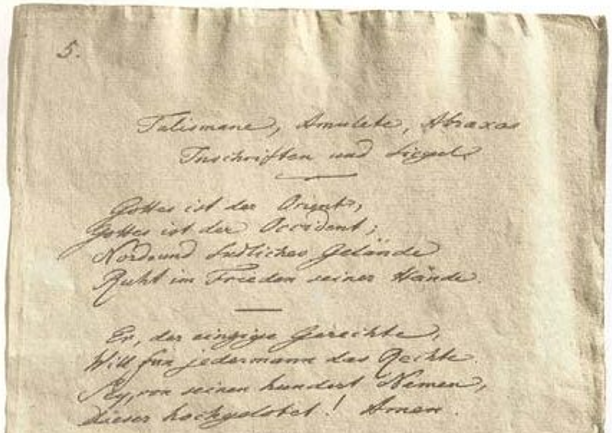 5.
Talismane, Amulete, Abraxas
Inschriften und Siegel.
Gottes ist der Orient,
Gottes ist der Occident;
Nord und südliches Gelände
Ruht im Frieden seiner Hände
Er, der einzige Gerechte,
Will für jedermann das Rechte.
Sey, von seinen hundert Namen,
Dieser hochgelobet! Amen.